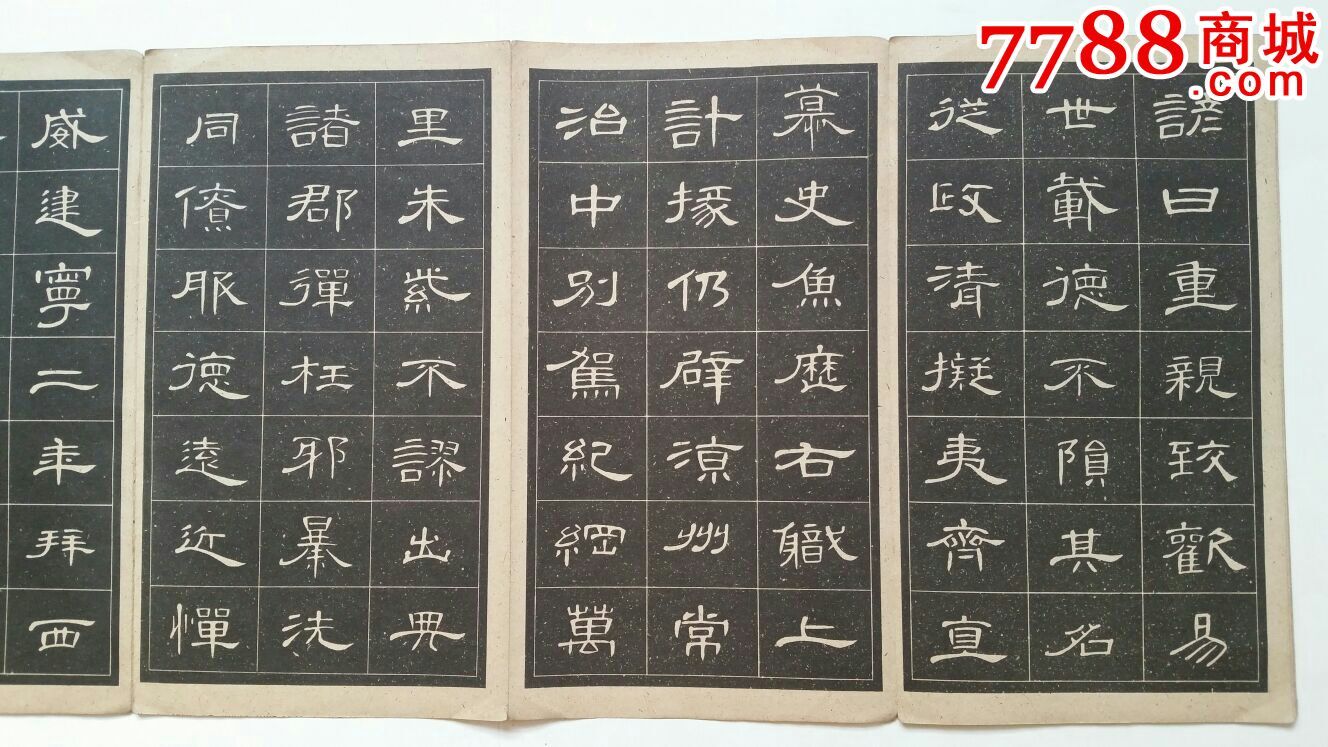 諺曰重親致歡易
世載德不隕其名
從政清擬夷齊直
慕史魚歷右職上
計掾仍辟涼州常
治中別駕紀綱萬
里朱紫不謬出典
諸郡彈枉邪暴洗
同僚服德遠近憚
威建寧二年拜西
7788商城
.com